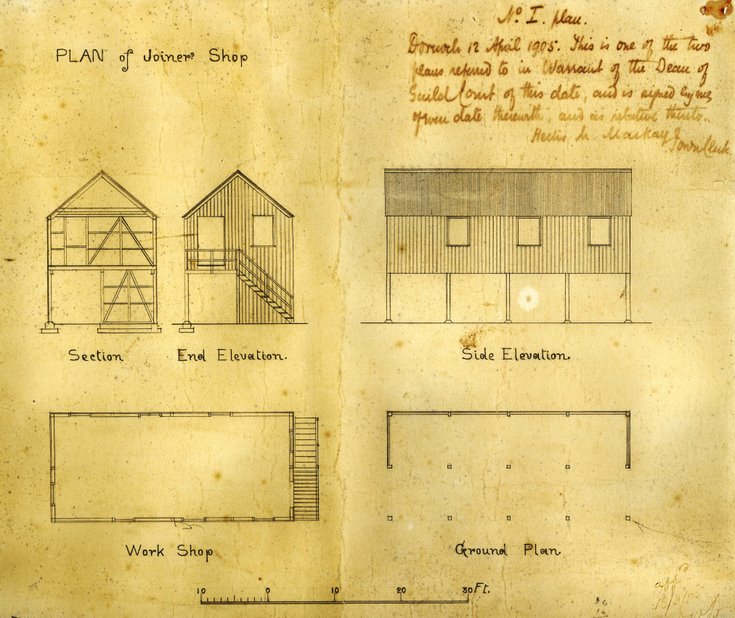 No. I. plan.
Dornoch 12 April 1905. This is one of the two
plans referred to in Warrant of the Dean of
Guild Court of this date, and is signed by me
of even date therewith, and as relative thereto.
Hector M. Mackay
Town Clerk
PLAN of Joiners Shop
Section
End Elevation.
Side Elevation.
Work Shop
Ground Plan
10 0 10 20 30 Ft.